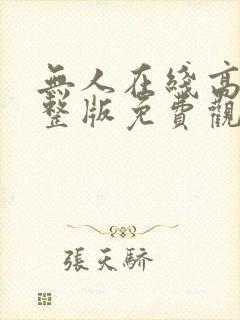 無人在綫高
整版免費觀
張天驕